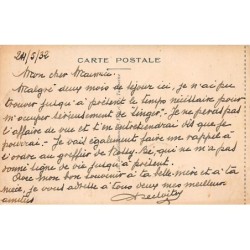 24/5/52
CARTE POSTALE
Mon cher Maurice.
Malgré deux mois de séjour ici, je n'ai pu
trouver jusqu'à présent le temps nécessaire pour
m'occuper sérieusement de "Singer". Je ne perds pas
l'affaire de vue et t'en entretiendrai dès que je
pourrai. Je vais également faire un rappel à
l'ordre au greffier de qui ne m'a pas
donné signe de vie jusqu'à présent.
Avec mon bon souvenir à ta belle-mère et à ta
je vous adresse à tous deux mes meilleures
amitiés